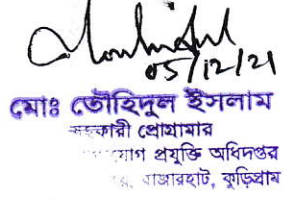 05/12/21
মোঃ তৌহিদুল ইসলাম
সহকারী প্রোগ্রামার
যোগ প্রযুক্তি অধিদপ্তর
রাজারহাট, কুড়িগ্রাম